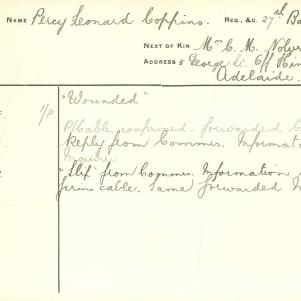 NAME Percy Leonard Coppins. REG. &C. 27th Ba
NEXT OF KIN Mrs C. M.
ADDRESS 5 George St. Off Hin
Adelaide.
1/P "Wounded"
P/Cable confirmed. forwarded
Reply from Commrs. Informat
"Slip" from Commrs. Information
firms cable. Same forwarded